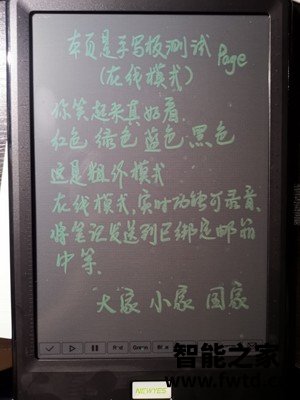 本页是手写板测试 Page
(在线模式)
你笑起来真好看.
红色 绿色 蓝色 黑色
这是粗体模式
在线模式,实时功能可录音、
将笔记发送到已绑定邮箱
中等.
大家 小家 国家
NEWYES
智能之家
www.fwtd.cn